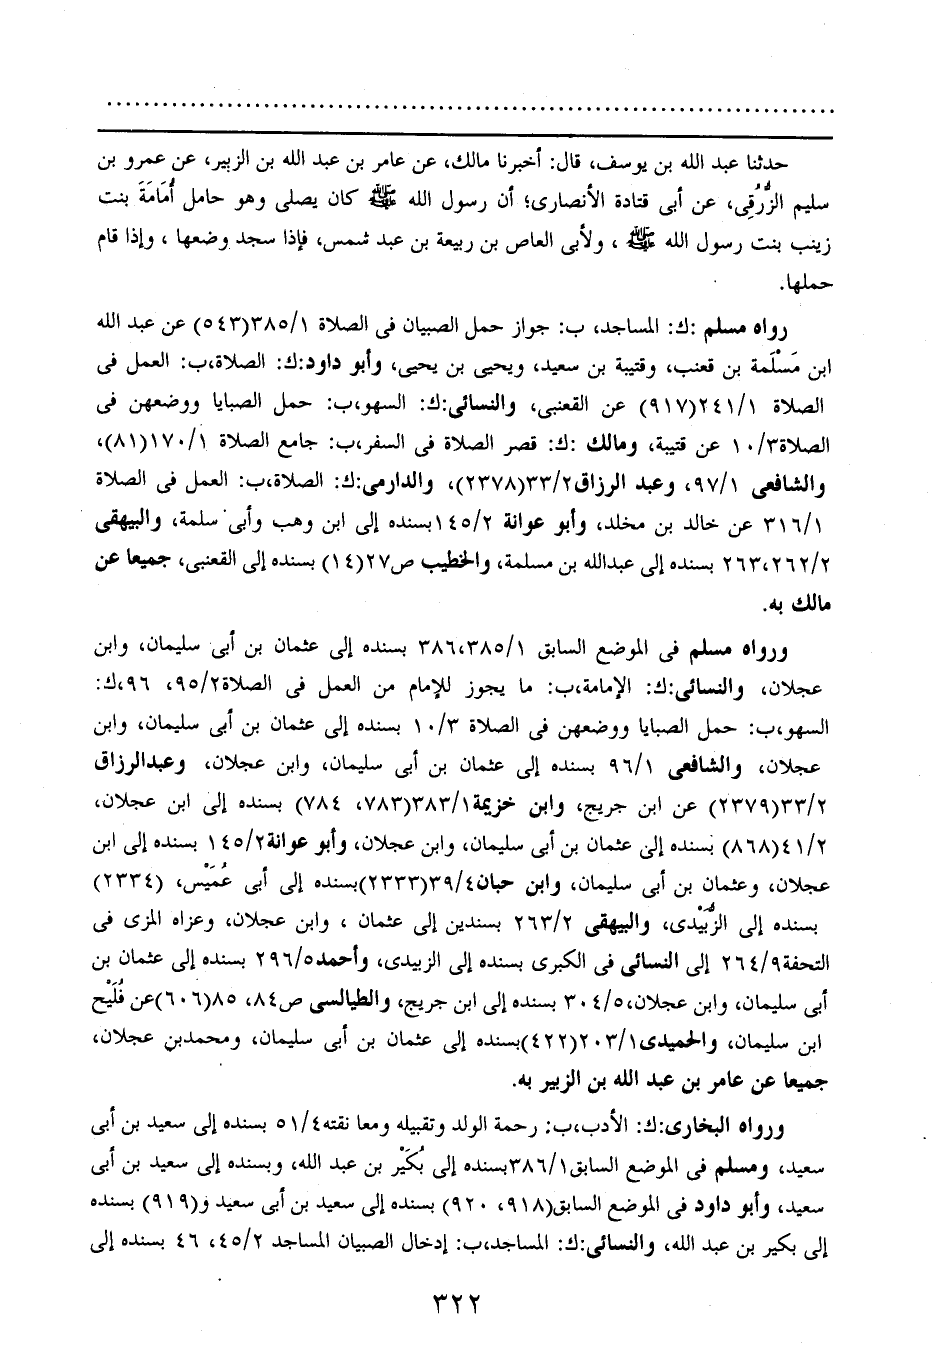 حدثنا عبد الله بن يوسف، قال: أخبرنا مالك، عن عامر بن عبد الله بن الزبير، عن عمرو بن
سليم الزُّرَقى، عن أبى قتادة الأنصارى؛ أن رسول الله ﷺ كان يصلى وهو حامل أُمَامَةَ بنت
زينب بنت رسول الله ﷺ ، ولأبى العاص بن ربيعة بن عبد شمس، فإذا سجد وضعها ، وإذا قام
حملها.
رواه مسلم :ك: المساجد، ب: جواز حمل الصبيان فى الصلاة ٣٨٥/١(٥٤٣) عن عبد الله
ابن مَسْلَمة بن قعنب، وقتيبة بن سعيد، ويحيى بن يحيى، وأبو داود:ك: الصلاة،ب: العمل فى
الصلاة ٢٤١/١(٩١٧) عن القعنبى، والنسائى:ك: السهو،ب: حمل الصبايا ووضعهن فى
الصلاة١٠/٣ عن قتيبة، ومالك :ك: قصر الصلاة فى السفر،ب: جامع الصلاة ١٧٠/١(٨١)،
والشافعى ٩٧/١، وعبد الرزاق٣٣/٢(٢٣٧٨)، والدارمى:ك: الصلاة،ب: العمل فى الصلاة
٣١٦/١ عن خالد بن مخلد، وأبو عوانة ١٤٥/٢بسنده إلى ابن وهب وأبى سلمة، والبيهقى
٢٦٣،٢٦٢/٢ بسنده إلى عبدالله بن مسلمة، والخطيب ص٢٧(١٤) بسنده إلى القعنبى، جميعا عن
مالك به.
ورواه مسلم فى الموضع السابق ٣٨٦،٣٨٥/١ بسنده إلى عثمان بن أبى سليمان، وابن
عجلان، والنسائى:ك: الإمامة،ب: ما يجوز للإمام من العمل فى الصلاة٩٥/٢، ٩٦،ك:
السهو،ب: حمل الصبايا ووضعهن فى الصلاة ١٠/٣ بسنده إلى عثمان بن أبى سليمان، وابن
عجلان، والشافعى ٩٦/١ بسنده إلى عثمان بن أبى سليمان، وابن عجلان، وعبدالرزاق
٣٣/٢(٢٣٧٩) عن ابن جريج، وابن خزيمة٣٨٣/١(٧٨٣، ٧٨٤) بسنده إلى ابن عجلان،
٤١/٢(٨٦٨) بسنده إلى عثمان بن أبى سليمان، وابن عجلان، وأبو عوانة١٤٥/٢ بسنده إلى ابن
عجلان، وعثمان بن أبى سليمان، وابن حبان٣٩/٤(٢٣٣٣)بسنده إلى أبى عُمَيْس، (٢٣٣٤)
بسنده إلى الزُّبَيْدى، والبيهقى ٢٦٣/٢ بسندين إلى عثمان ، وابن عجلان، وعزاه المزى فى
التحفة٢٦٤/٩ إلى النسائى فى الكبرى بسنده إلى الزبيدى، وأحمد٢٩٦/٥ بسنده إلى عثمان بن
أبى سليمان، وابن عجلان،٣٠٤/٥ بسنده إلى ابن جريج، والطيالسى ص٨٤، ٨٥(٦٠٦)عن فُلَيْح
ابن سليمان، والحميدى٢٠٣/١(٤٢٢)بسنده إلى عثمان بن أبى سليمان، ومحمدبن عجلان،
جميعا عن عامر بن عبد الله بن الزبير به.
ورواه البخارى:ك: الأدب،ب: رحمة الولد وتقبيله ومعا نقته٥١/٤ بسنده إلى سعيد بن أبى
سعيد، ومسلم فى الموضع السابق٣٨٦/١بسنده إلى بُكَيْر بن عبد الله، وبسنده إلى سعيد بن أبى
سعيد، وأبو داود فى الموضع السابق(٩١٨، ٩٢٠) بسنده إلى سعيد بن أبى سعيد و(٩١٩) بسنده
إلى بكير بن عبد الله، والنسائى:ك: المساجد،ب: إدخال الصبيان المساجد ٤٥/٢، ٤٦ بسنده إلى
٣٢٢